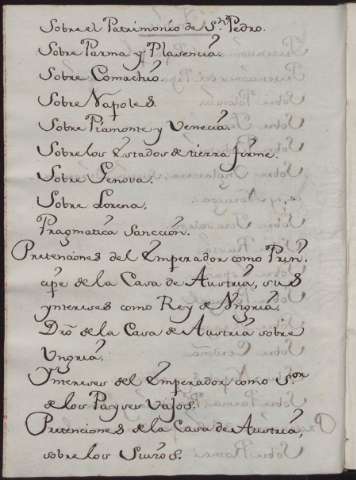 Sobre el Patrimonio de Sn. Pedro.
Sobre Parma y Plasencia.
Sobre Comachio.
Sobre Napoles.
Sobre Piamonte y Venecia.
Sobre los Estados de tierra firme.
Sobre Genova.
Sobre Lorena.
Pragmatica Sanccion.
Pretenciones del Emperador como Prin-
cipe de la Casa de Austria, sus
yntereses como Rey de Vngria.
Dro. de la Casa de Austria sobre
Vngria.
Yntereses del Emperador como Sor.
de los Payses Vajos.
Pretenciones de la Casa de Austria,
sobre los Suizos.